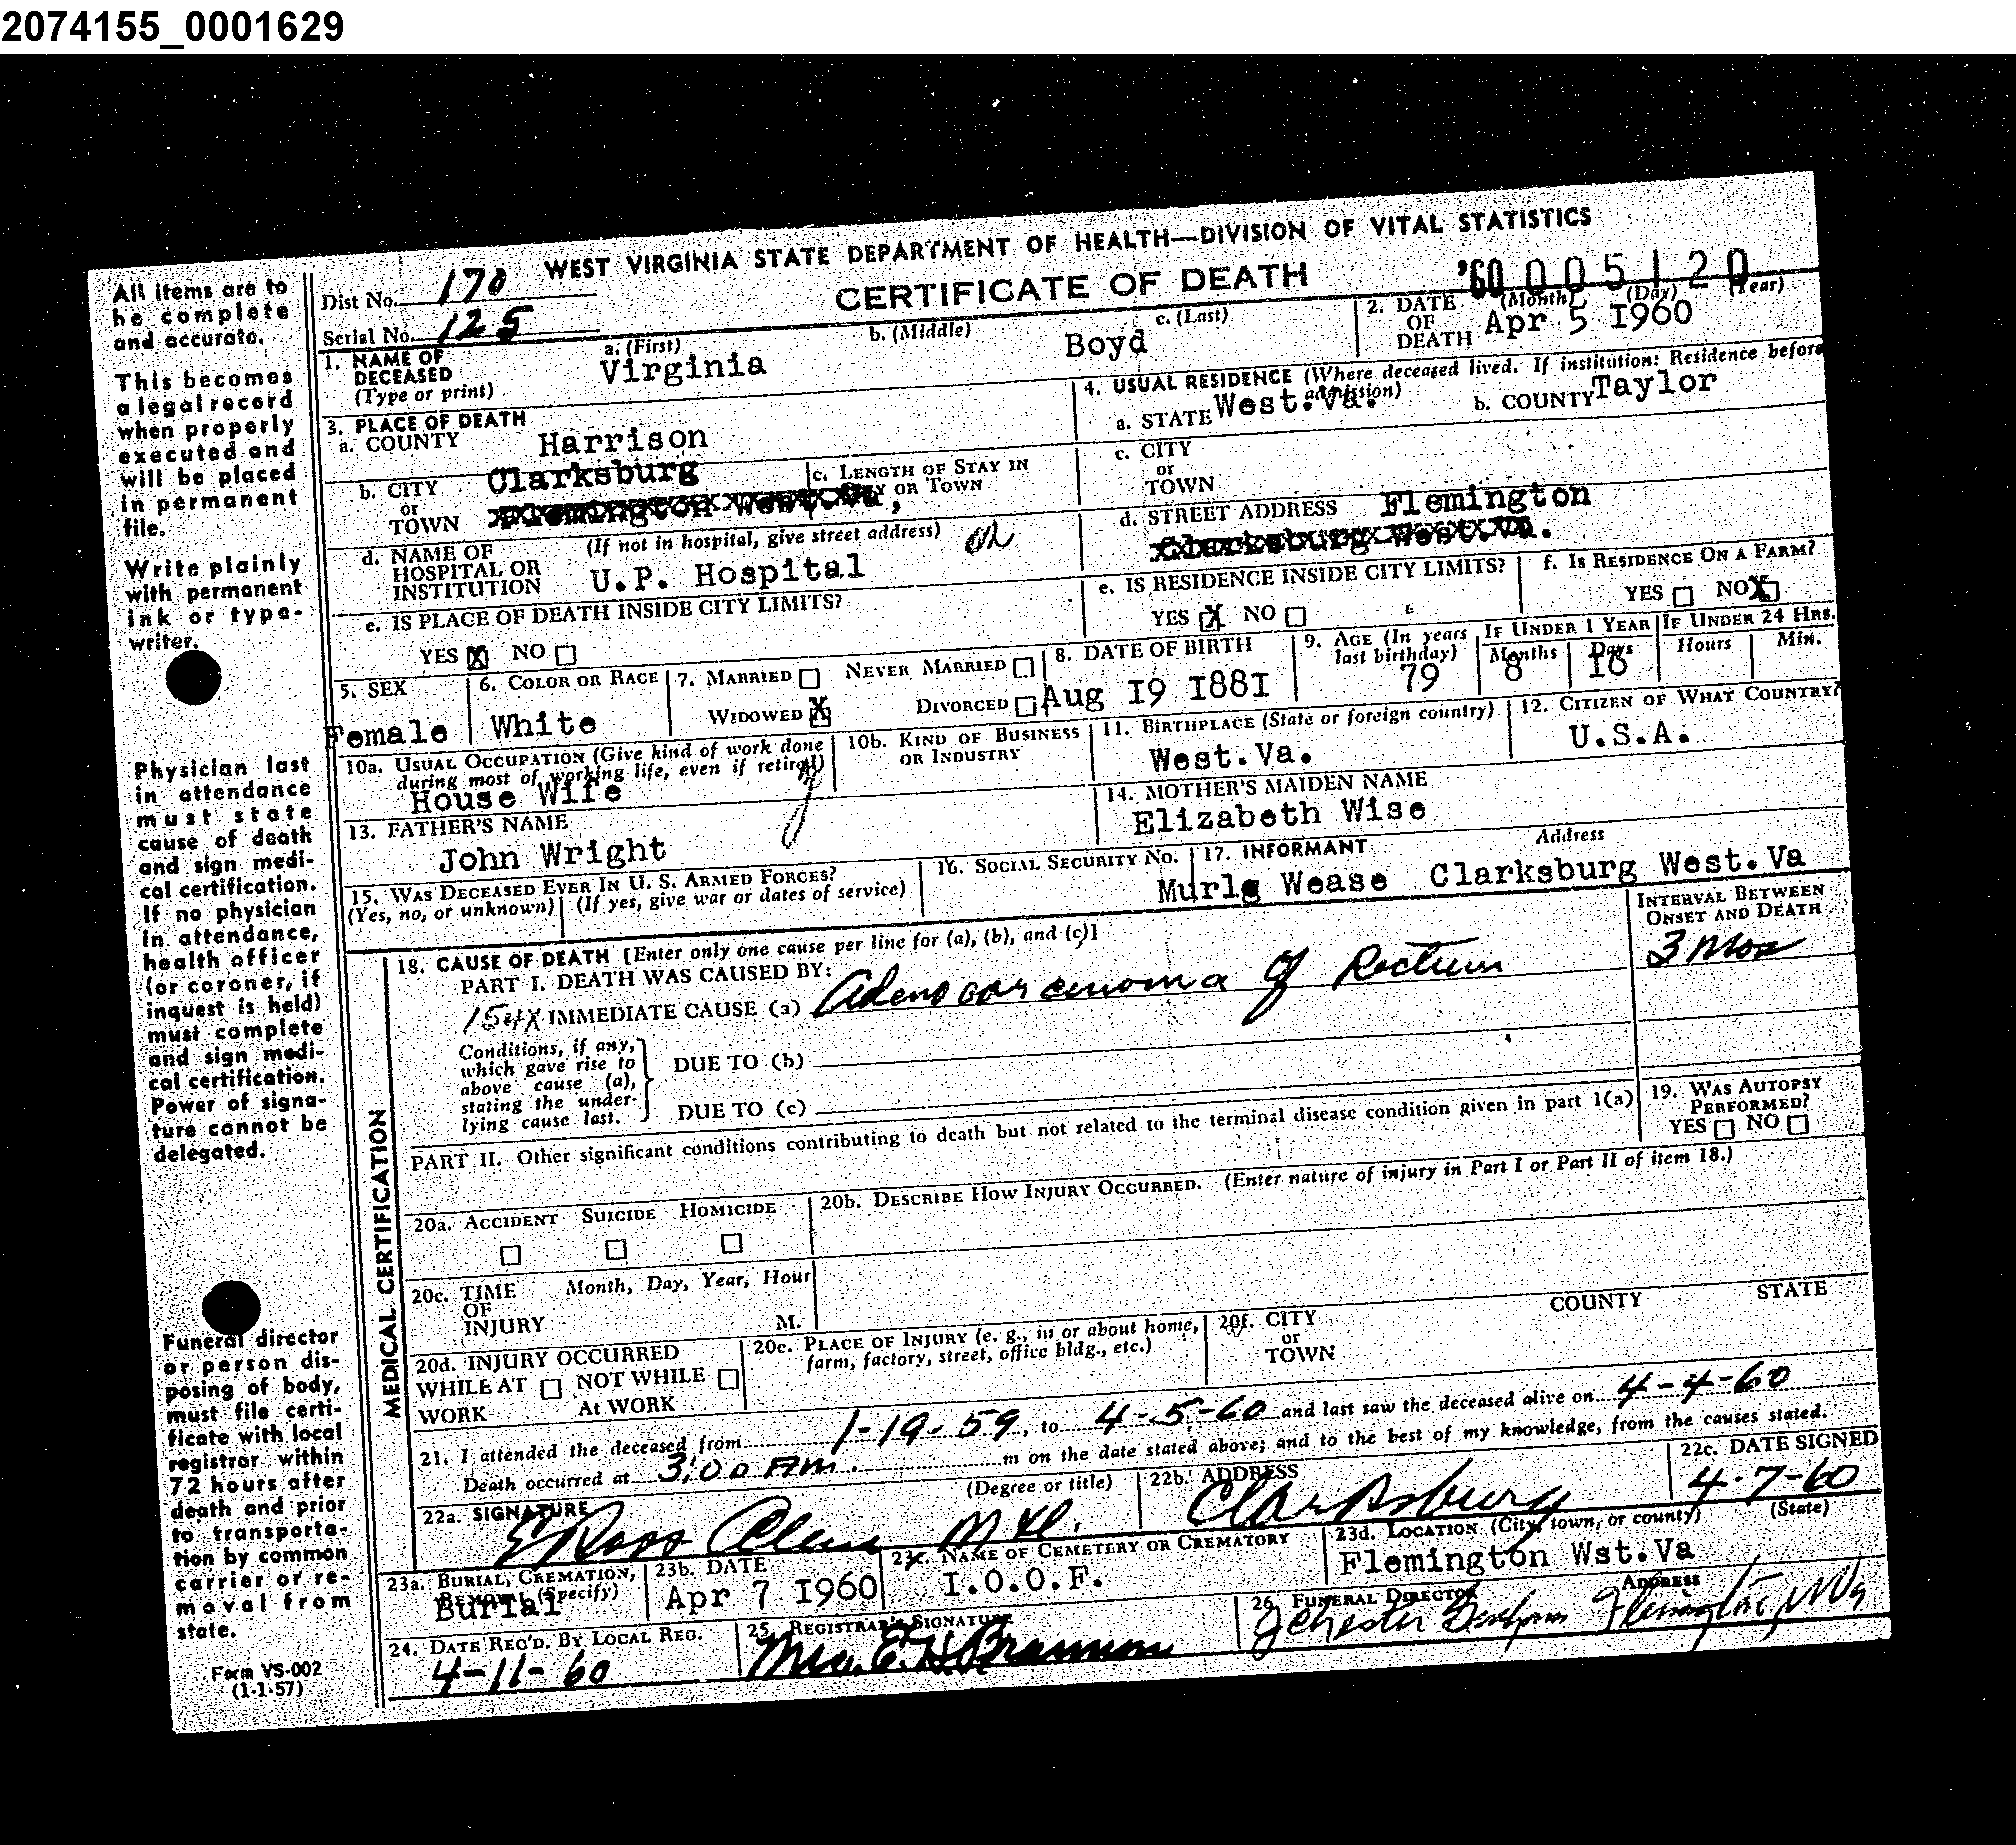 2074155_0001629
All items are to be complete and accurate.
This becomes a legal record when properly executed and will be placed in permanent file.
Write plainly with permanent ink or typewriter.
Physician last in attendance must state cause of death and sign medical certification. If no physician in attendance, health officer (or coroner, if inquest is held) must complete and sign medical certification. Power of signature cannot be delegated.
Funeral director or person disposing of body, must file certificate with local registrar within 72 hours after death and prior to transportation by common carrier or removal from state.
Form VS-002
(1-1-57)
WEST VIRGINIA STATE DEPARTMENT OF HEALTH—DIVISION OF VITAL STATISTICS
CERTIFICATE OF DEATH
'60 005120
Dist No. 170
Serial No. 125
1. NAME OF DECEASED (Type or print) a. (First) Virginia b. (Middle) c. (Last) Boyd
2. DATE OF DEATH (Month) (Day) (Year) Apr 5 1960
3. PLACE OF DEATH
a. COUNTY Harrison
b. CITY or TOWN Clarksburg
Flemington West.Va,
c. LENGTH OF STAY IN CITY OR TOWN
d. NAME OF HOSPITAL OR INSTITUTION (If not in hospital, give street address) U.P. Hospital
e. IS PLACE OF DEATH INSIDE CITY LIMITS?
YES X NO
4. USUAL RESIDENCE (Where deceased lived. If institution: Residence before admission)
a. STATE West.Va. b. COUNTY Taylor
c. CITY or TOWN
d. STREET ADDRESS Flemington
Clarksburg West.Va.
e. IS RESIDENCE INSIDE CITY LIMITS? YES X NO
f. IS RESIDENCE ON A FARM? YES NO X
5. SEX Female
6. COLOR OR RACE White
7. MARRIED NEVER MARRIED WIDOWED X DIVORCED
8. DATE OF BIRTH Aug 19 1881
9. AGE (In years last birthday) 79
IF UNDER 1 YEAR Months 8 Days 16
IF UNDER 24 HRS. Hours Min.
10a. USUAL OCCUPATION (Give kind of work done during most of working life, even if retired) House Wife
10b. KIND OF BUSINESS OR INDUSTRY
11. BIRTHPLACE (State or foreign country) West.Va.
12. CITIZEN OF WHAT COUNTRY? U.S.A.
13. FATHER'S NAME John Wright
14. MOTHER'S MAIDEN NAME Elizabeth Wise
15. WAS DECEASED EVER IN U. S. ARMED FORCES? (Yes, no, or unknown) (If yes, give war or dates of service)
16. SOCIAL SECURITY NO.
17. INFORMANT Address
Wease Clarksburg West.Va
MEDICAL CERTIFICATION
18. CAUSE OF DEATH [Enter only one cause per line for (a), (b), and (c)]
INTERVAL BETWEEN ONSET AND DEATH
PART I. DEATH WAS CAUSED BY:
154X IMMEDIATE CAUSE (a) Adenocarcinoma of Rectum 3 mos
Conditions, if any, which gave rise to above cause (a), stating the underlying cause last.
DUE TO (b)
DUE TO (c)
PART II. Other significant conditions contributing to death but not related to the terminal disease condition given in part I(a)
19. WAS AUTOPSY PERFORMED? YES NO
20a. ACCIDENT SUICIDE HOMICIDE
20b. DESCRIBE HOW INJURY OCCURRED. (Enter nature of injury in Part I or Part II of item 18.)
20c. TIME OF INJURY Month, Day, Year, Hour M.
20d. INJURY OCCURRED WHILE AT WORK NOT WHILE At WORK
20e. PLACE OF INJURY (e. g., in or about home, farm, factory, street, office bldg., etc.)
20f. CITY or TOWN COUNTY STATE
21. I attended the deceased from 1-19-59, to 4-5-60 and last saw the deceased alive on 4-4-60
Death occurred at 3:00 AM. m on the date stated above; and to the best of my knowledge, from the causes stated.
22a. SIGNATURE (Degree or title) E Ross M.D.
22b. ADDRESS Clarksburg
22c. DATE SIGNED 4-7-60
23a. BURIAL, CREMATION, REMOVAL (Specify) Burial
23b. DATE Apr 7 1960
23c. NAME OF CEMETERY OR CREMATORY I.O.O.F.
23d. LOCATION (City, town, or county) (State) Flemington Wst.Va
24. DATE REC'D. BY LOCAL REG. 4-11-60
25. REGISTRAR'S SIGNATURE Mrs. E. H. Brannon
26. FUNERAL DIRECTOR ADDRESS
Chester Flemington, W Va